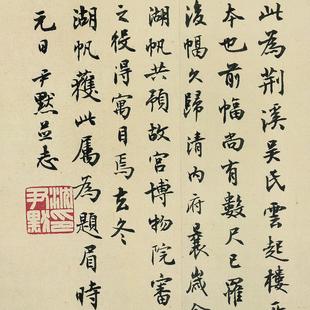 此為荆溪吳氏雲起樓
本也前幅尚有數尺已罹
後幅久歸清內府曩歲
湖帆共預故宮博物院審
之役得寓目焉去冬
湖帆獲此屬為題眉時
元日尹默並志
沈尹默印